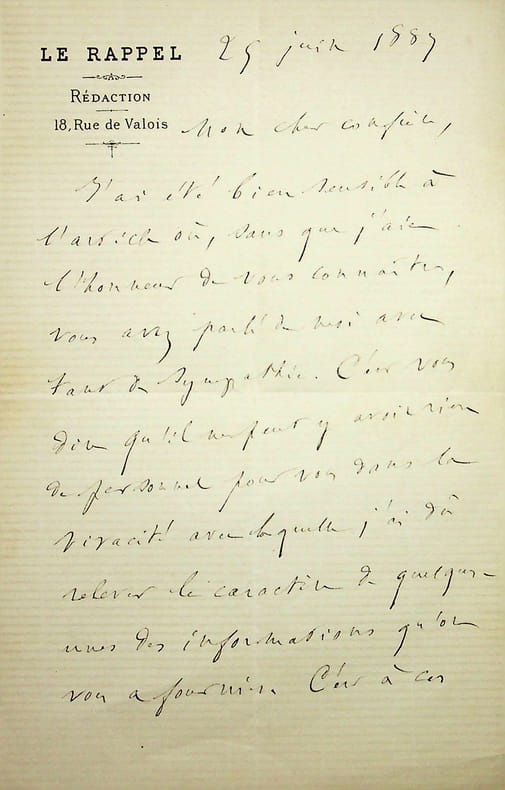 LE RAPPEL
RÉDACTION
18, Rue de Valois
25 juin 1887
Mon cher confrère,
J'ai été bien sensible à
l'article où, sans que j'aie
l'honneur de vous connaître,
vous avez parlé de moi avec
tant de sympathie. C'est vous
dire qu'il ne peut y avoir rien
de personnel pour vous dans la
vivacité avec laquelle j'ai dû
relever le caractère de quelques-
unes des informations qu'on
vous a fournies. C'est à ces